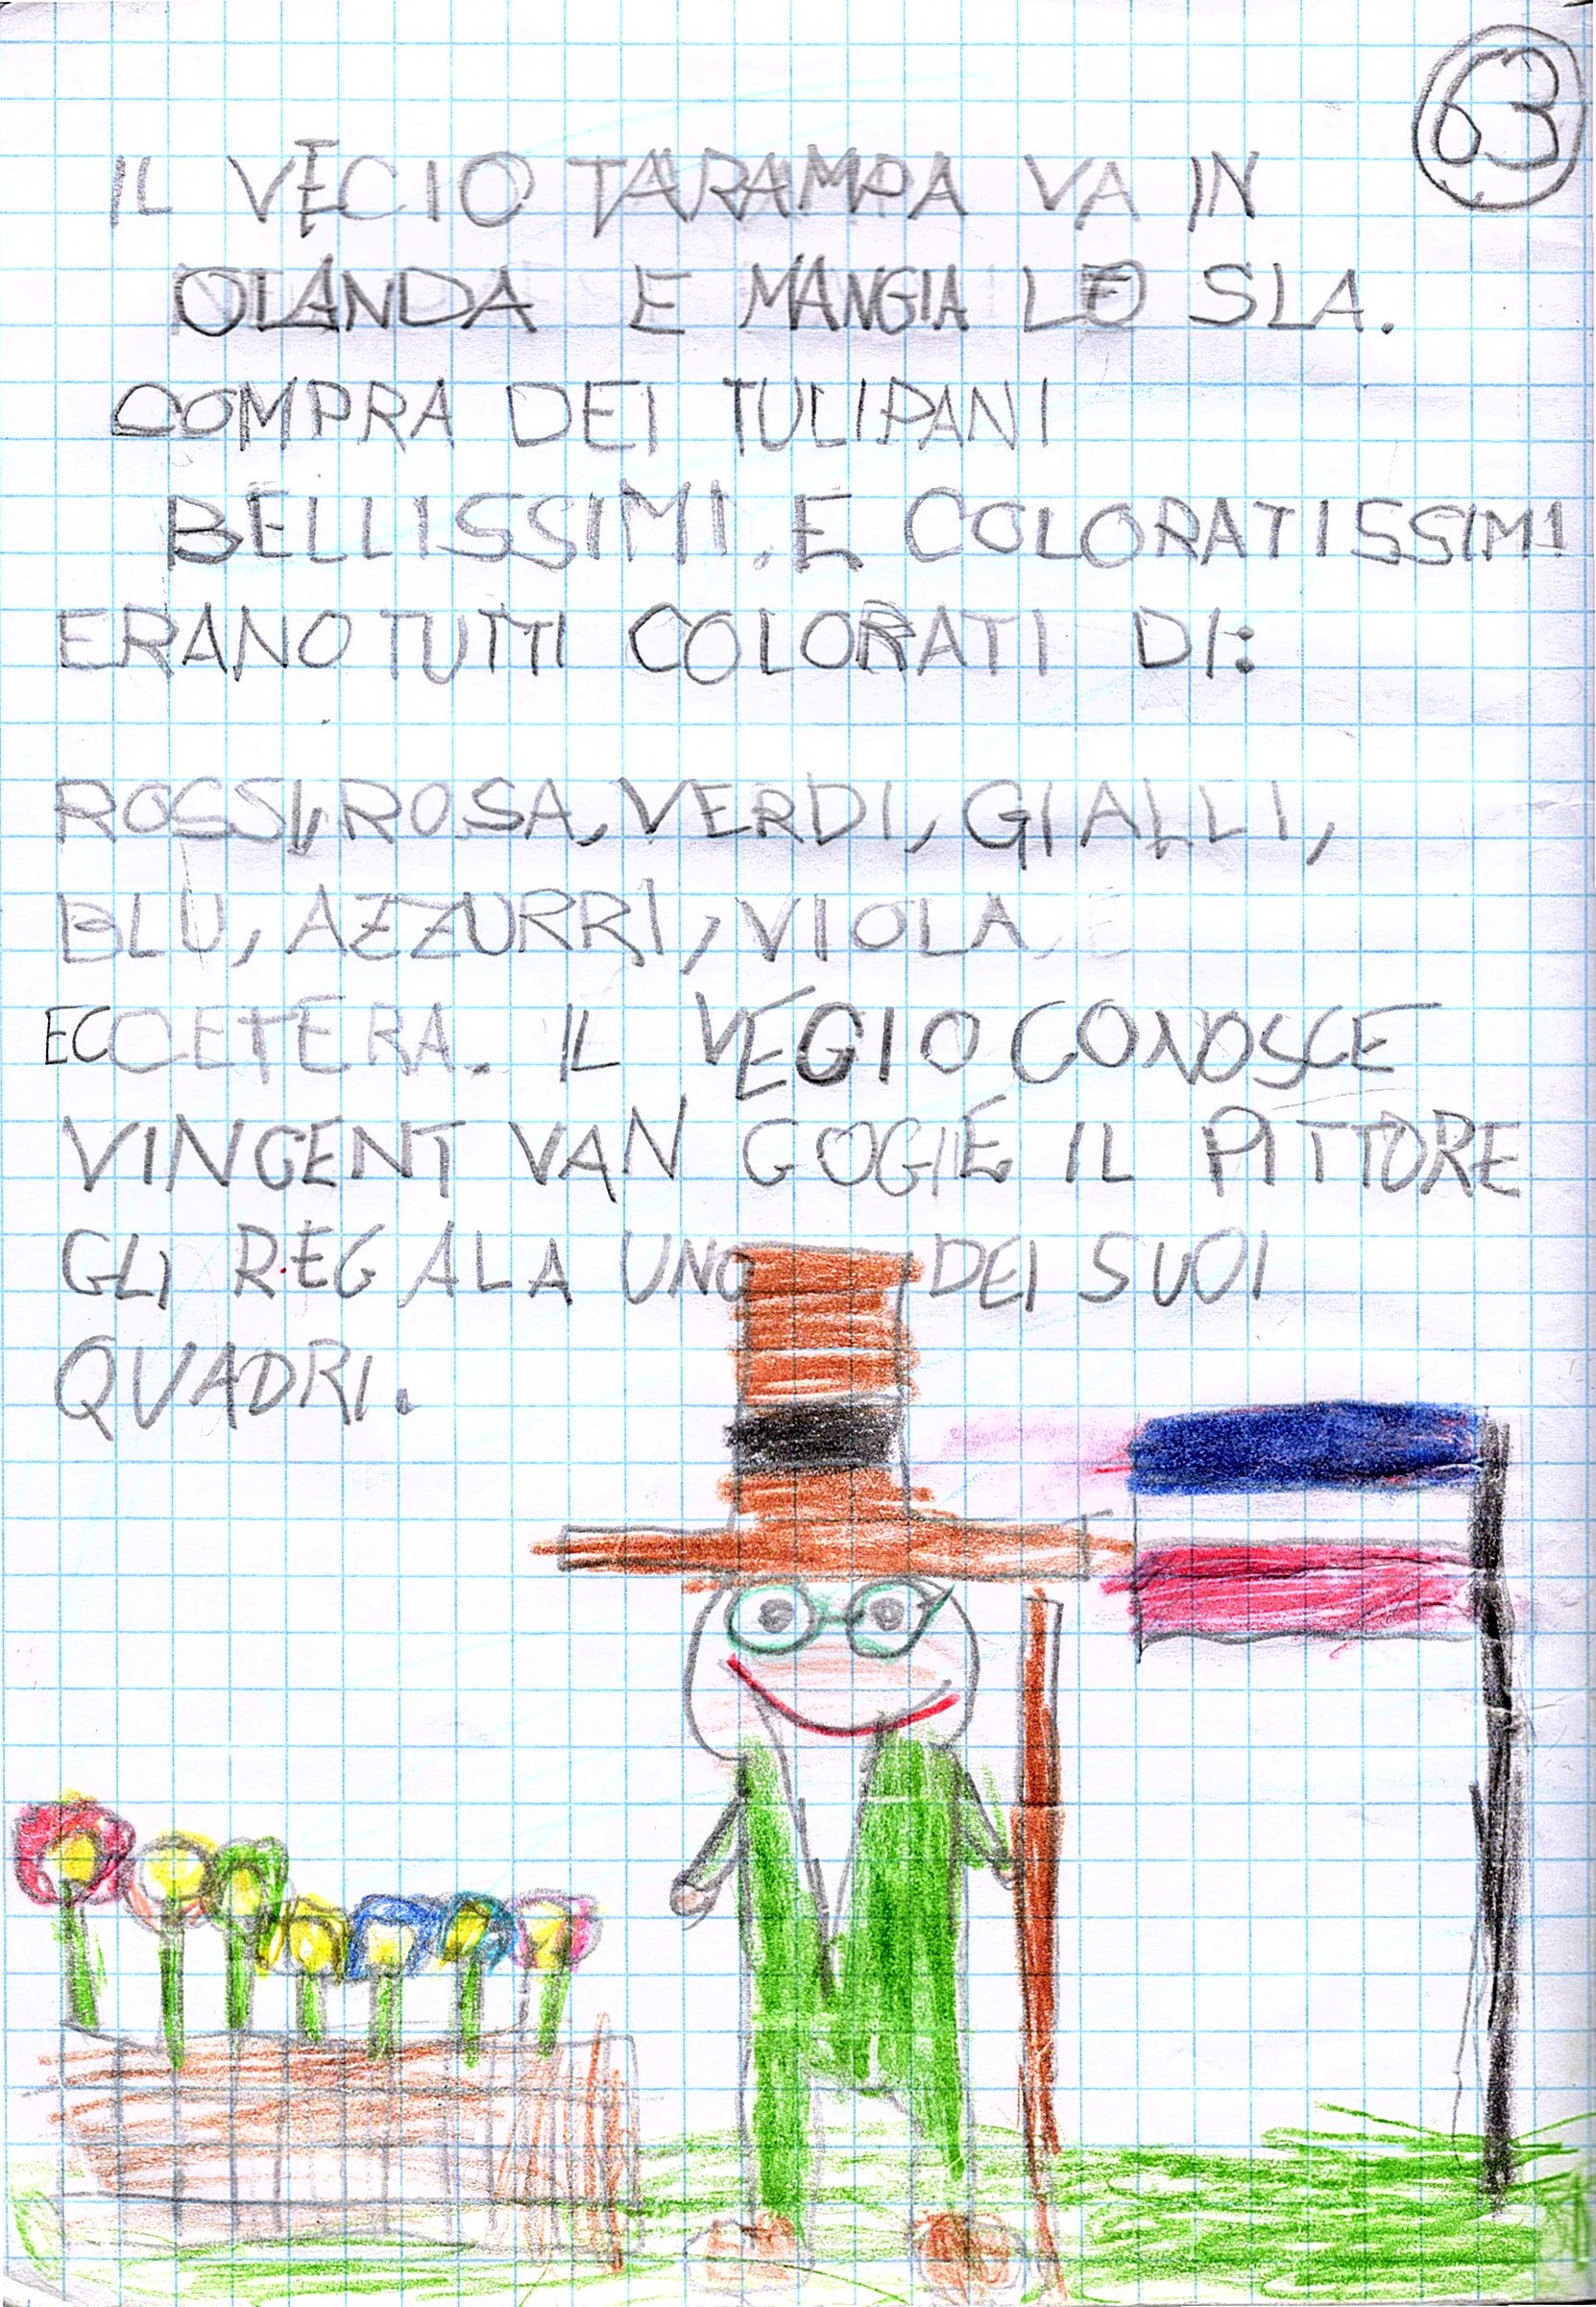 63
IL VECIO TARAMPA VA IN
OLANDA E MANGIA LO SLA.
COMPRA DEI TULIPANI
BELLISSIMI. E COLORATISSIMI
ERANO TUTTI COLORATI DI:
ROSSI, ROSA, VERDI, GIALLI,
BLU, AZZURRI, VIOLA, E
ECCETERA. IL VECIO CONOSCE
VINCENT VAN GOGIE IL PITTORE
GLI REGALA UNO DEI SUOI
QUADRI.